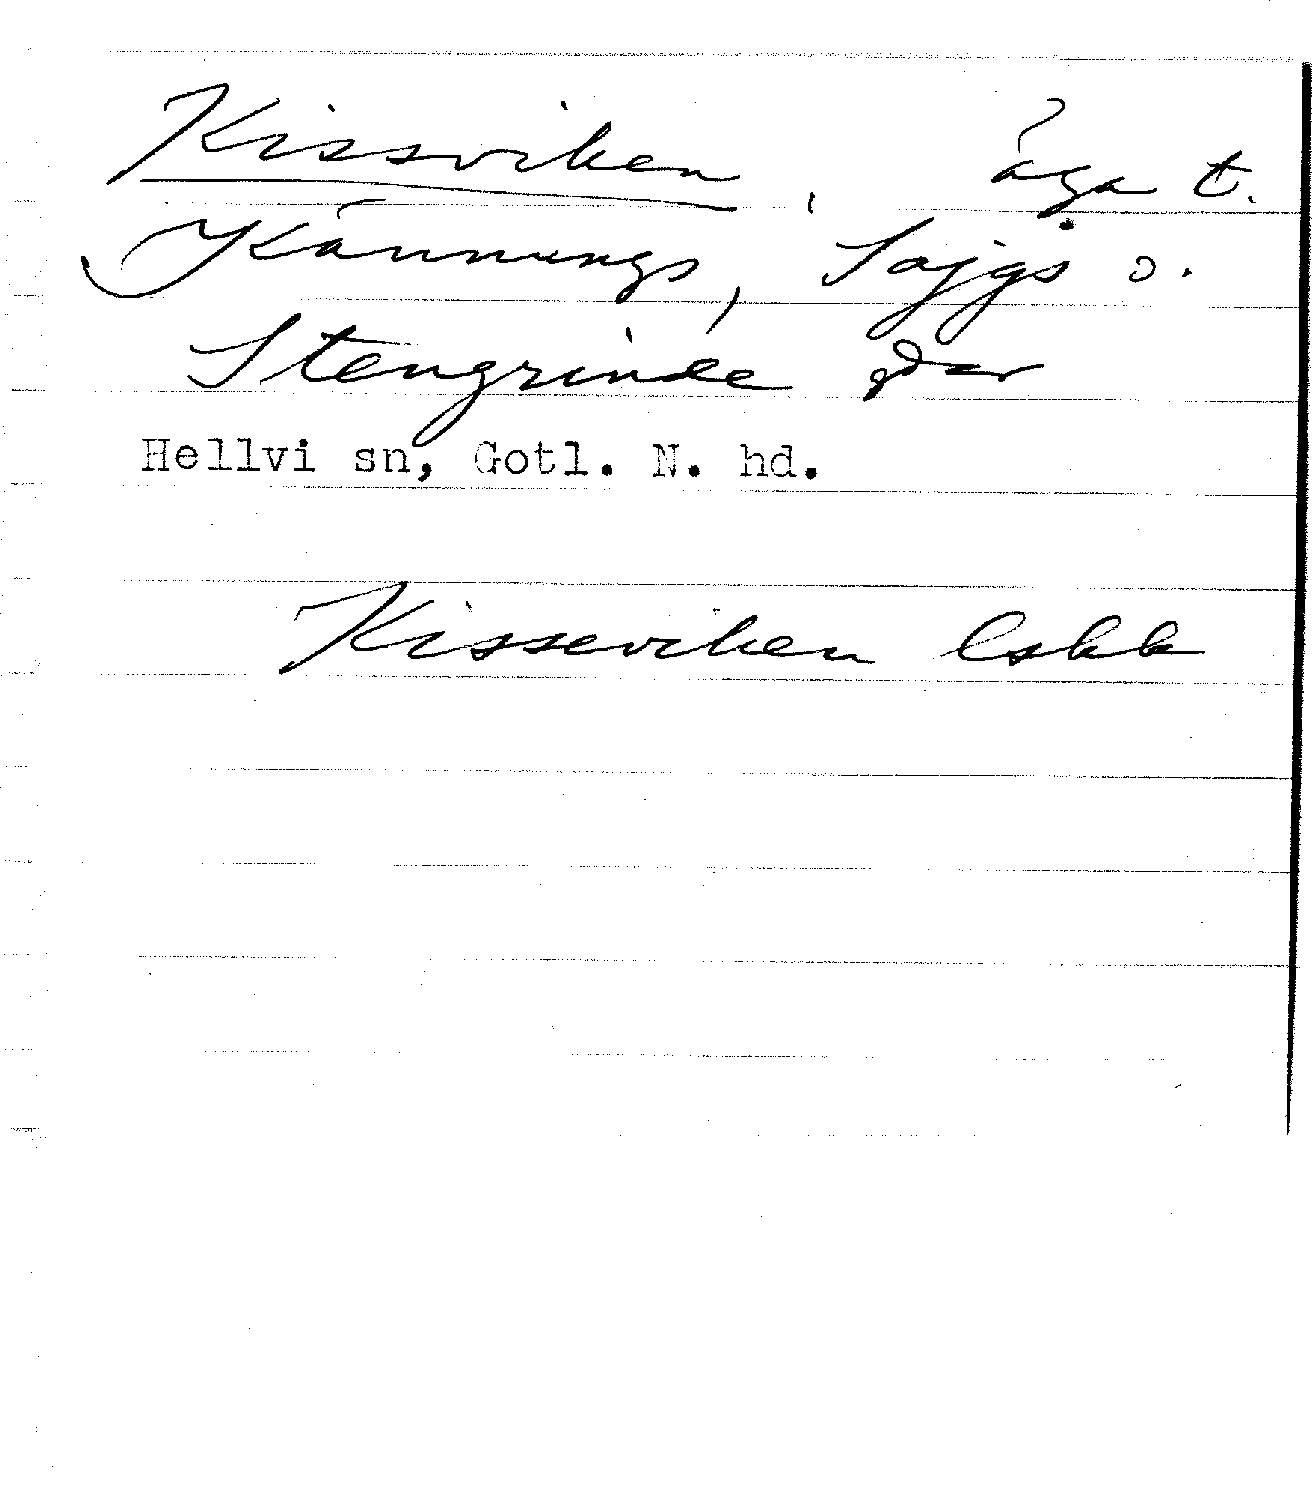 Kissviken, äga t.
Kännungs, Sajgs o.
Stengrinde gdar
Hellvi sn, Gotl. N. hd.
Kisseviken Eskk